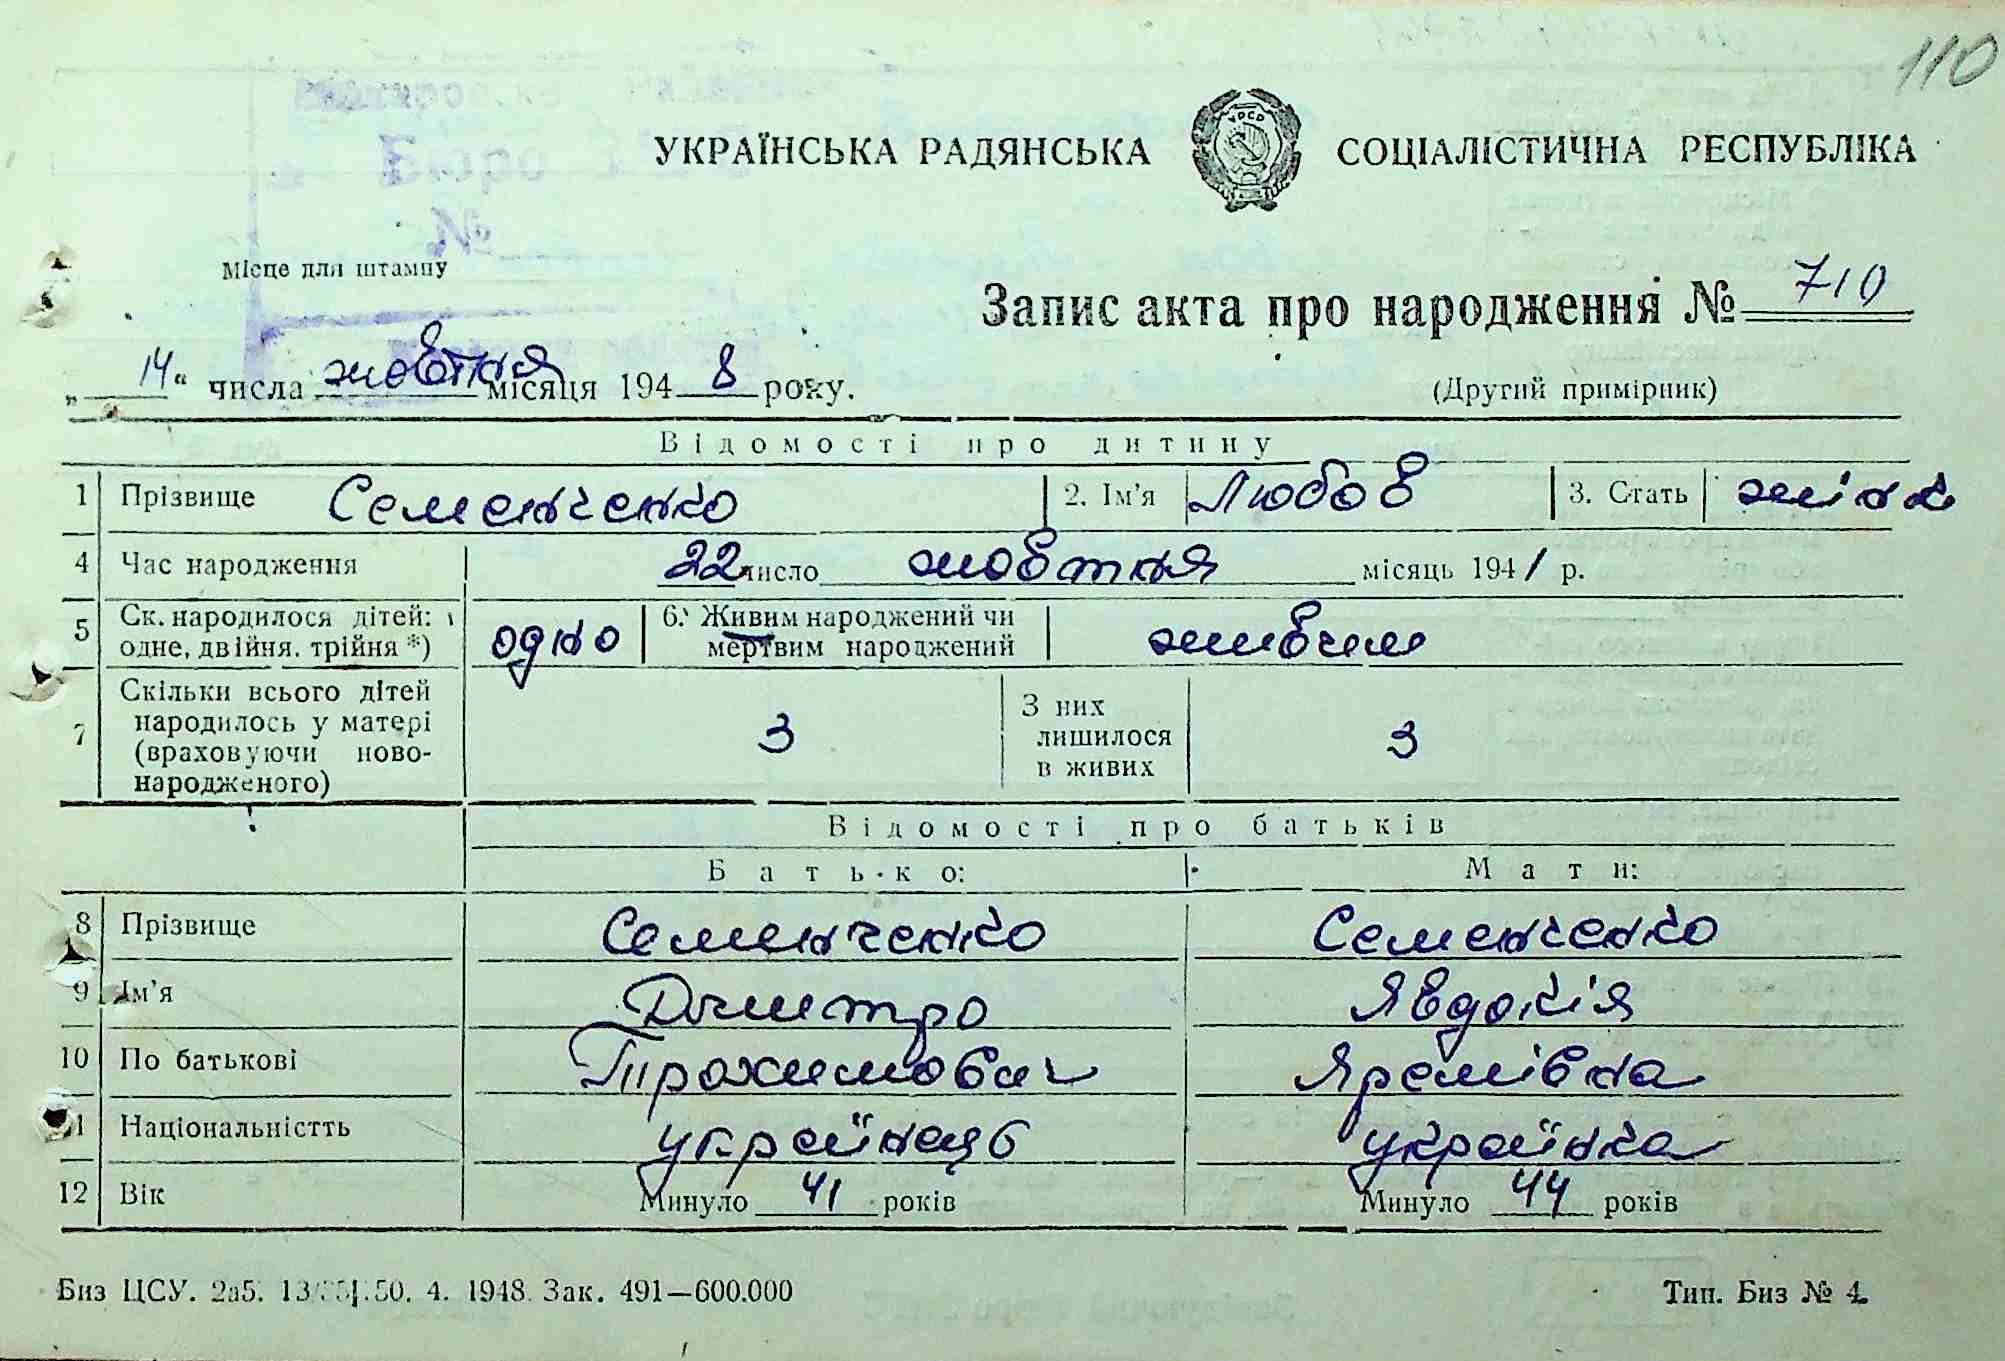 110
УКРАЇНСЬКА РАДЯНСЬКА СОЦІАЛІСТИЧНА РЕСПУБЛІКА
УРСР
Бюро
№
Місце для штампу
Запис акта про народження № 710
„14“ числа жовтня місяця 1948 року.
(Другий примірник)
Відомості про дитину
1 Прізвище Семенченко 2. Ім'я Любов 3. Стать жіноч
4 Час народження 22 число жовтня місяць 1941 р.
5 Ск. народилося дітей: одне, двійня, трійня *) одно 6. Живим народжений чи мертвим народжений живим
7 Скільки всього дітей народилось у матері (враховуючи новонародженого) 3 З них лишилося в живих 3
Відомості про батьків
Батько: Мати:
8 Прізвище Семенченко Семенченко
9 Ім'я Дмитро Явдокія
10 По батькові Трохимович Яремівна
11 Національністть українець українка
12 Вік Минуло 41 років Минуло 44 років
Биз ЦСУ. 2а5. 50. 4. 1948. Зак. 491—600.000 Тип. Биз № 4.